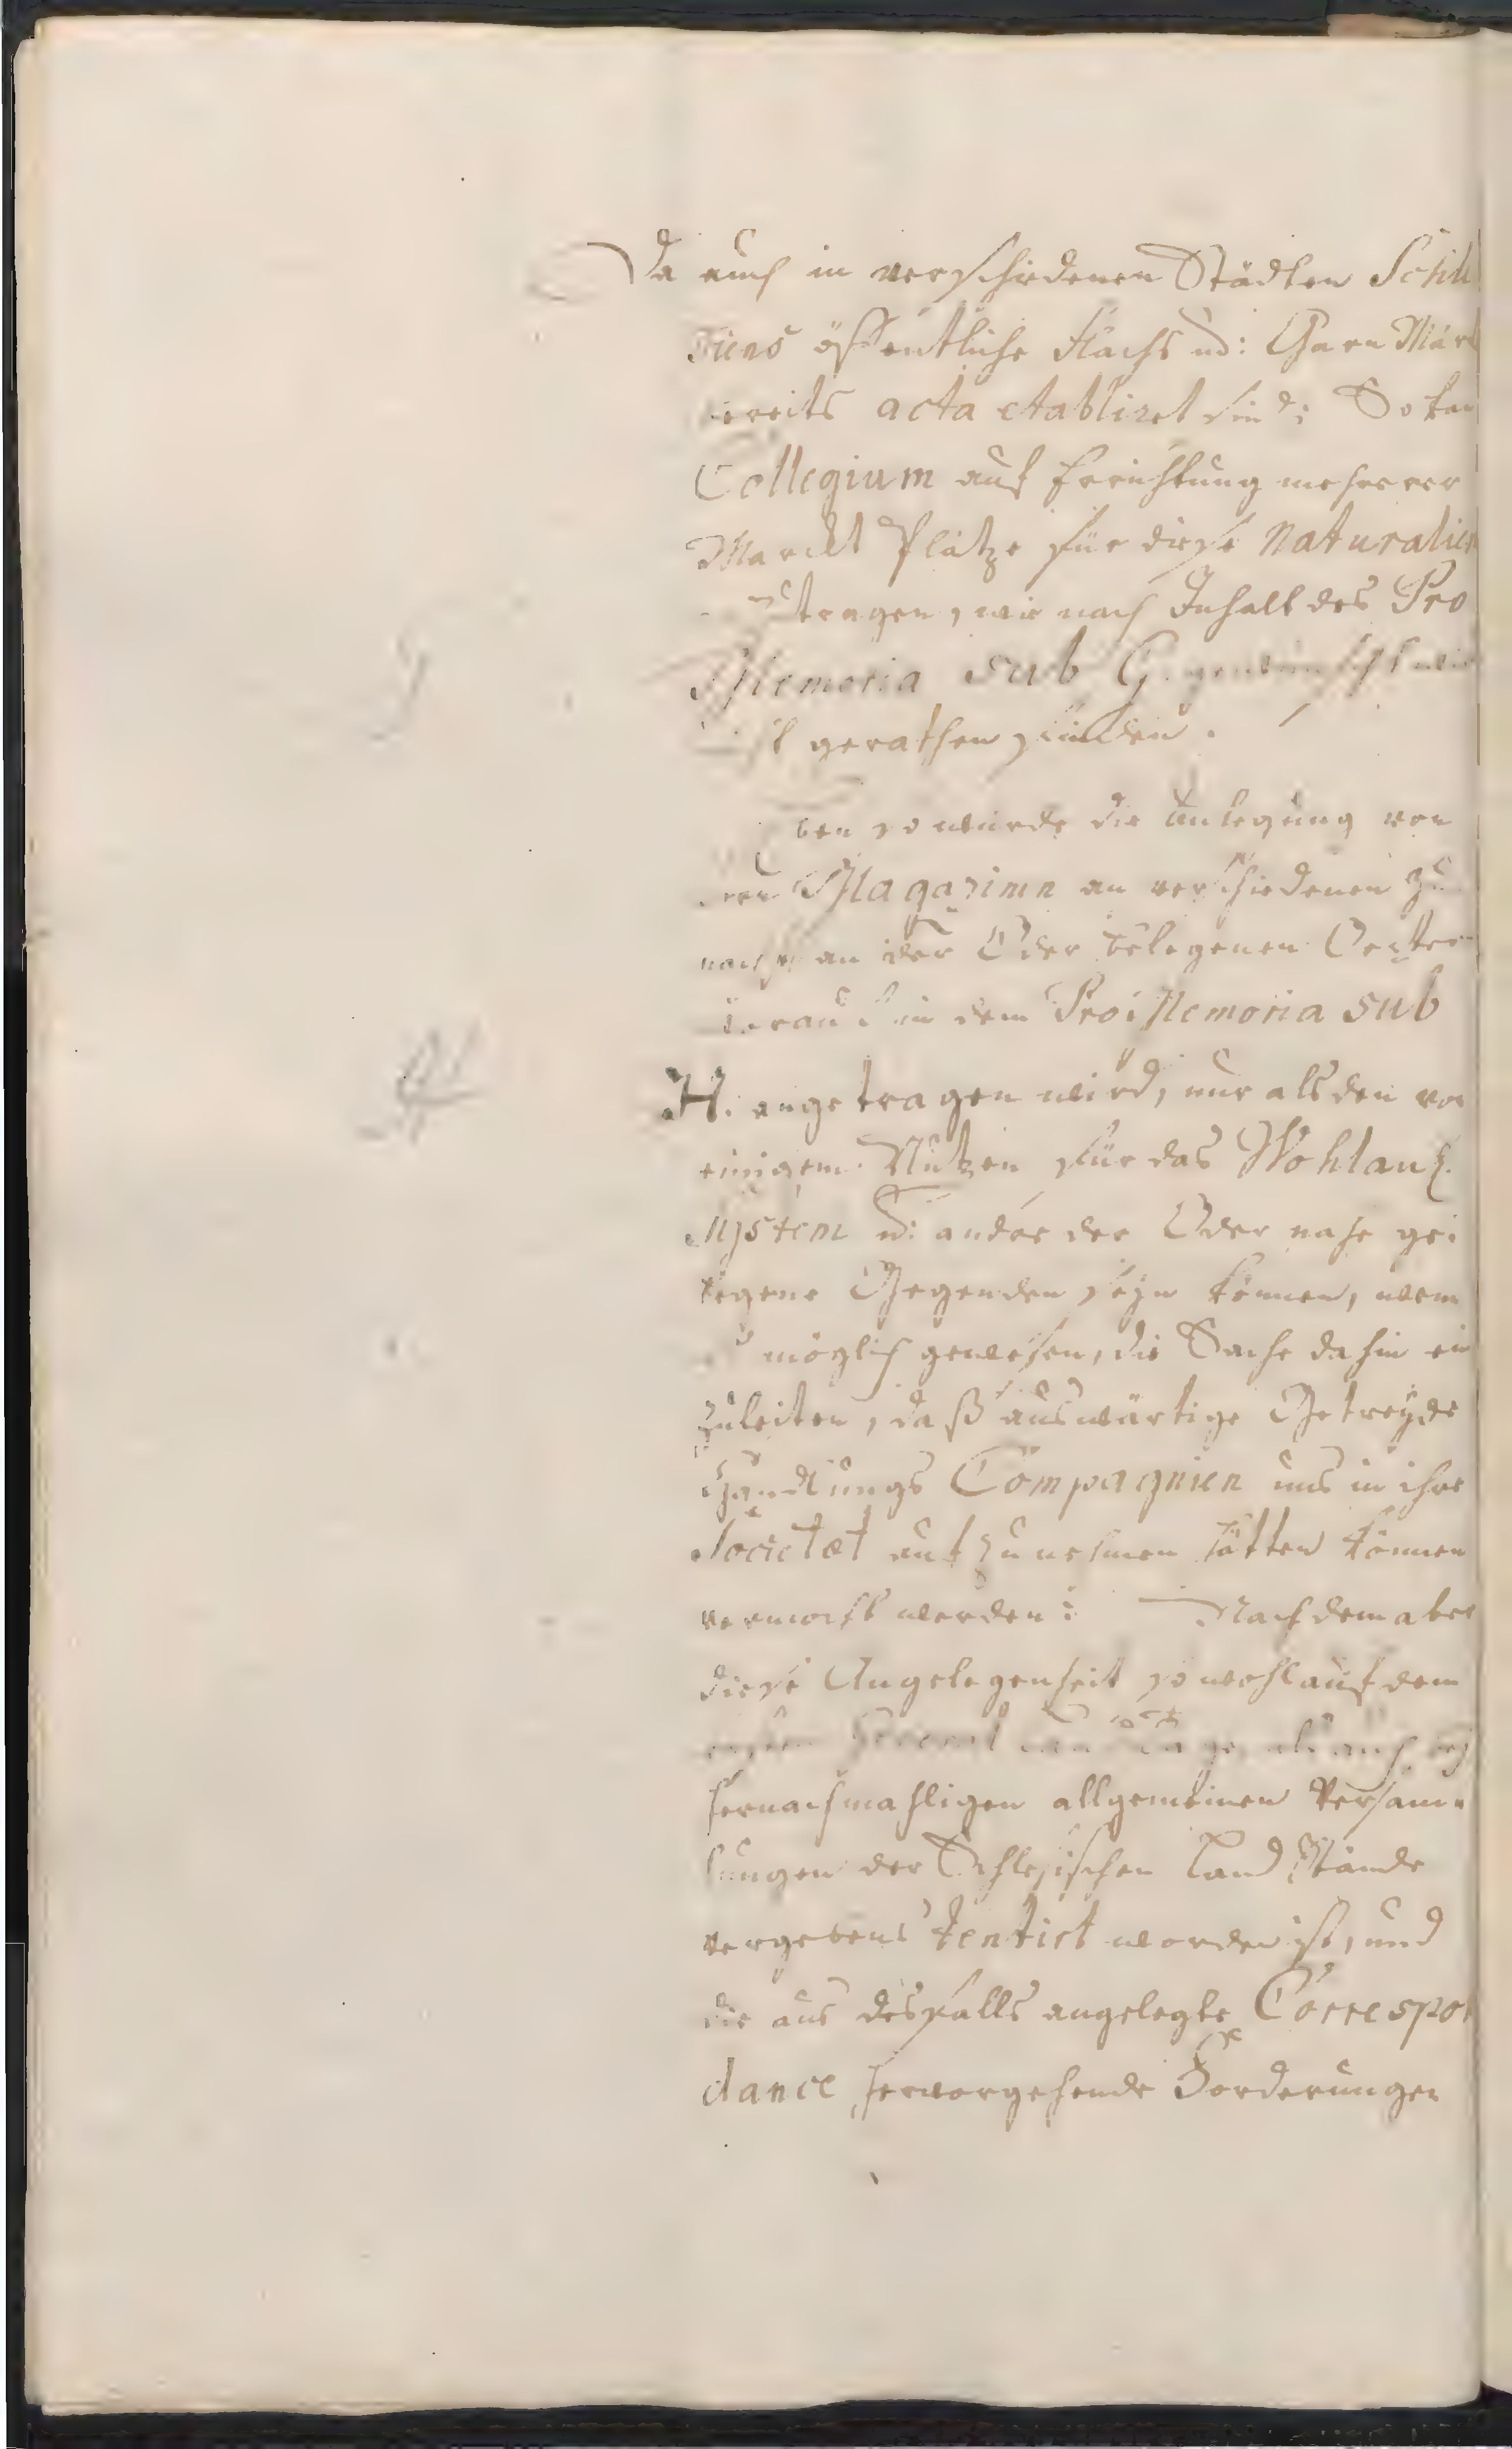 Da auch in verschiedenen Städten Schle
siens öffentliche Flachs ud: Garn Märk
bereits acta etabliret sind: So kan
Collegium auf Errichtung mehrerer
Marckt Plätze für diese Naturalien
tragen, wie nach Inhalt des Pro
Memoria sub G.
gerathen finden.
Eben so würde die Anlegung von
Magazinen an verschiedenen zu
nächst an der Oder belegenen Oerter
worauf in dem Pro Memoria sub
H. angetragen wird, nur alsden von
einigem Nutzen für das Wohlausche
System ud: andre der Oder nahe ge
legene Gegenden seyn können, wenn
es möglich gewesen, die Sache dahin ein
zuleiten, daß auswärtige Getreyde
Handlungs Compagnien uns in ihre
Societæt aufzunehmen hätten können
vermocht werden: Nachdem aber
diese Angelegenheit sowohl auf dem
ersten General Land Tage, als auch bey
hernachmahligen allgemeinen Versam
lungen der Schlesischen Land Stände
vergebens tentirt worden ist, und
die aus desfalls angelegte Correspon
dance hervorgehende Forderungen